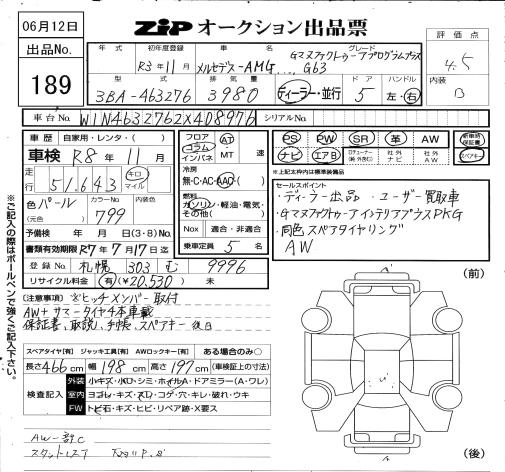 06月12日
ZIP オークション出品票
出品No.
189
年式
初年度登録 R3年11月
車名 メルセデス-AMG
グレード Gマヌファクトゥーアプログラムプラス
G63
評価点
4.5
内装
B
型式 3BA-463276
排気量 3980
ディーラー・並行
ドア 5
ハンドル 左・右
車台No. W1N4632762X408976
シリアルNo.
車歴 自家用・レンタ・( )
車検 R8年11月
走行 51,643 キロ マイル
色 パール (元色)
カラーNo. 799
内装色
予備検 年 月 日(3・8)No.
書類有効期限 R7年7月17日迄
登録No. 札幌 303 む 9996
リサイクル料金 有(¥20,530) 未
フロア コラム インパネ AT MT 速
冷房 無・C・AC・AAC
燃料 ガソリン・軽油・電気・その他( )
Nox 適合・非適合
乗車定員 5名
PS PW SR 革 AW 新車時保証書
ナビ エアB 社外ナビ 社外AW スペアキー
※上記太枠内は標準装備
セールスポイント
・ディーラー出品・ユーザー買取車
・GマヌファクトゥーアインテリアプラスPKG
・同色スペアタイヤリング
AW
(注意事項) ※ヒッチメンバー取付
AW+サマータイヤ4本車載
保証書、取説、手帳、スペアキー後日
スペアタイヤ[有] ジャッキ工具[有] AWロックキー[有] ある場合のみ○
長さ466cm 幅198cm 高さ197cm (車検証上の寸法)
検査記入
外装 小キズ・小凹・シミ・ホイルA・ドアミラー(A・ワレ)
室内 ヨゴレ・キズ・スレ・コゲ・穴・キレ・破れ・ウキ
FW トビ石・キズ・ヒビ・リペア跡・X要ス
AW一部C
※ご記入の際はボールペンで強くご記入下さい。
(前)
(後)